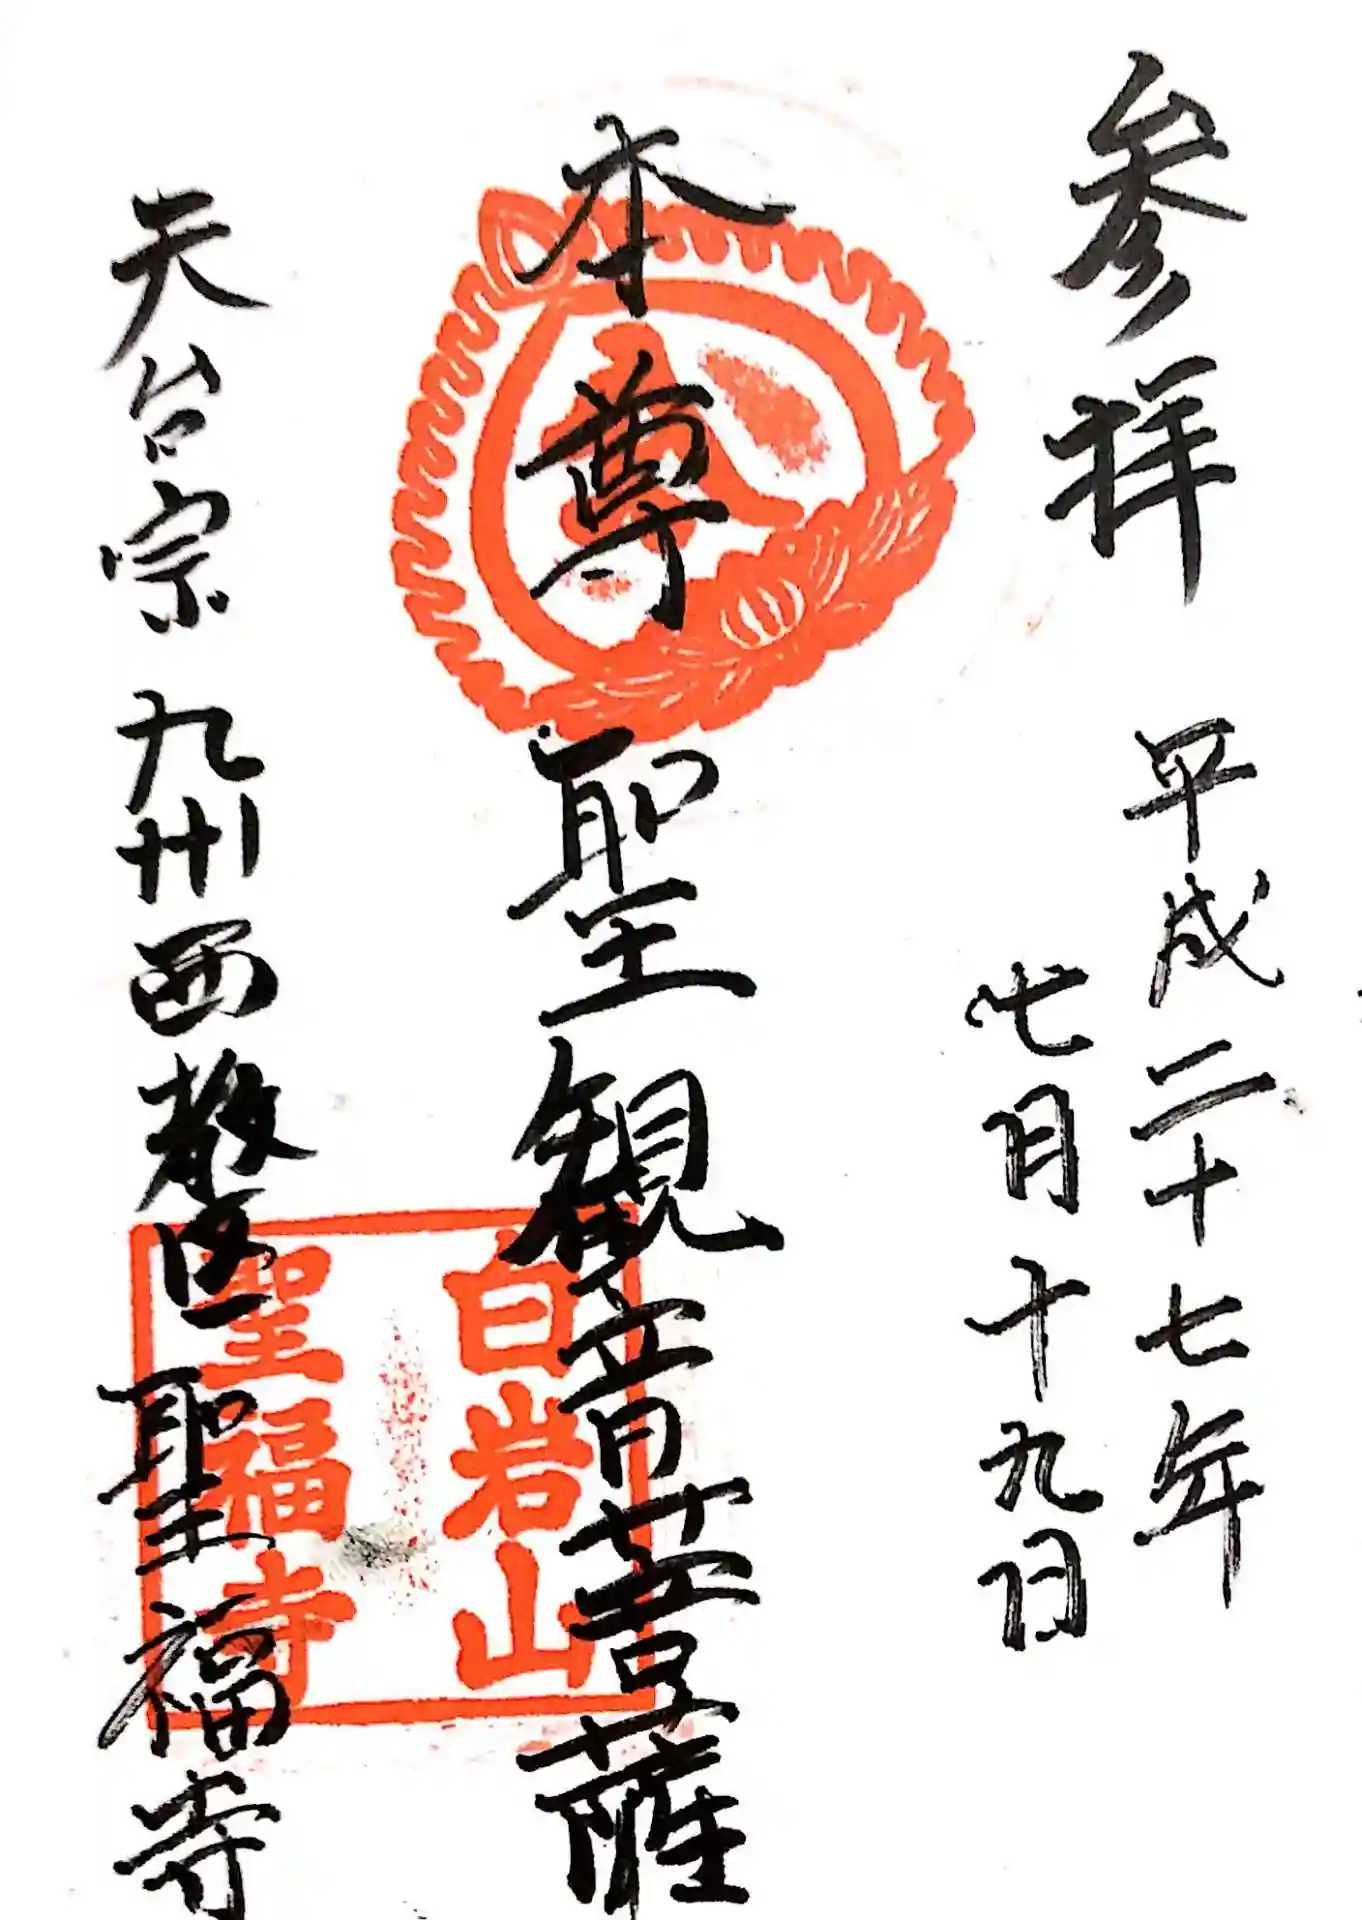 参拝 平成二十七年
七月十九日
本尊 聖観音菩薩
白岩山
聖福寺
天台宗 九州西教区 聖福寺